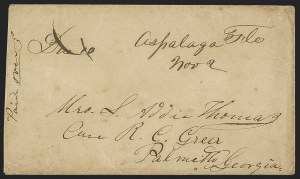 Paid over
Due 10
Aspalaga Flo
Nov 2
Mrs. L. Addie Thomas
Care R. C. Greer
Palmetto Georgia